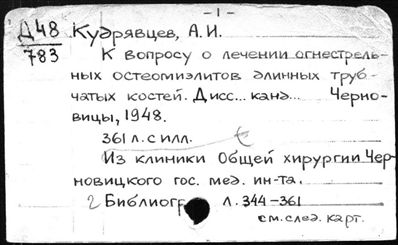 - 1 -
Д48 Кудрявцев, А.И.
783 К вопросу о лечении огнестрель-
ных остеомиэлитов длинных труб-
чатых костей. Дисс... канд... Черно-
вицы, 1948.
361 л. с илл.
Из клиники Общей хирургии Чер-
новицкого гос. мед. ин-та.
2 Библиогр л. 344-361
см. след. карт.